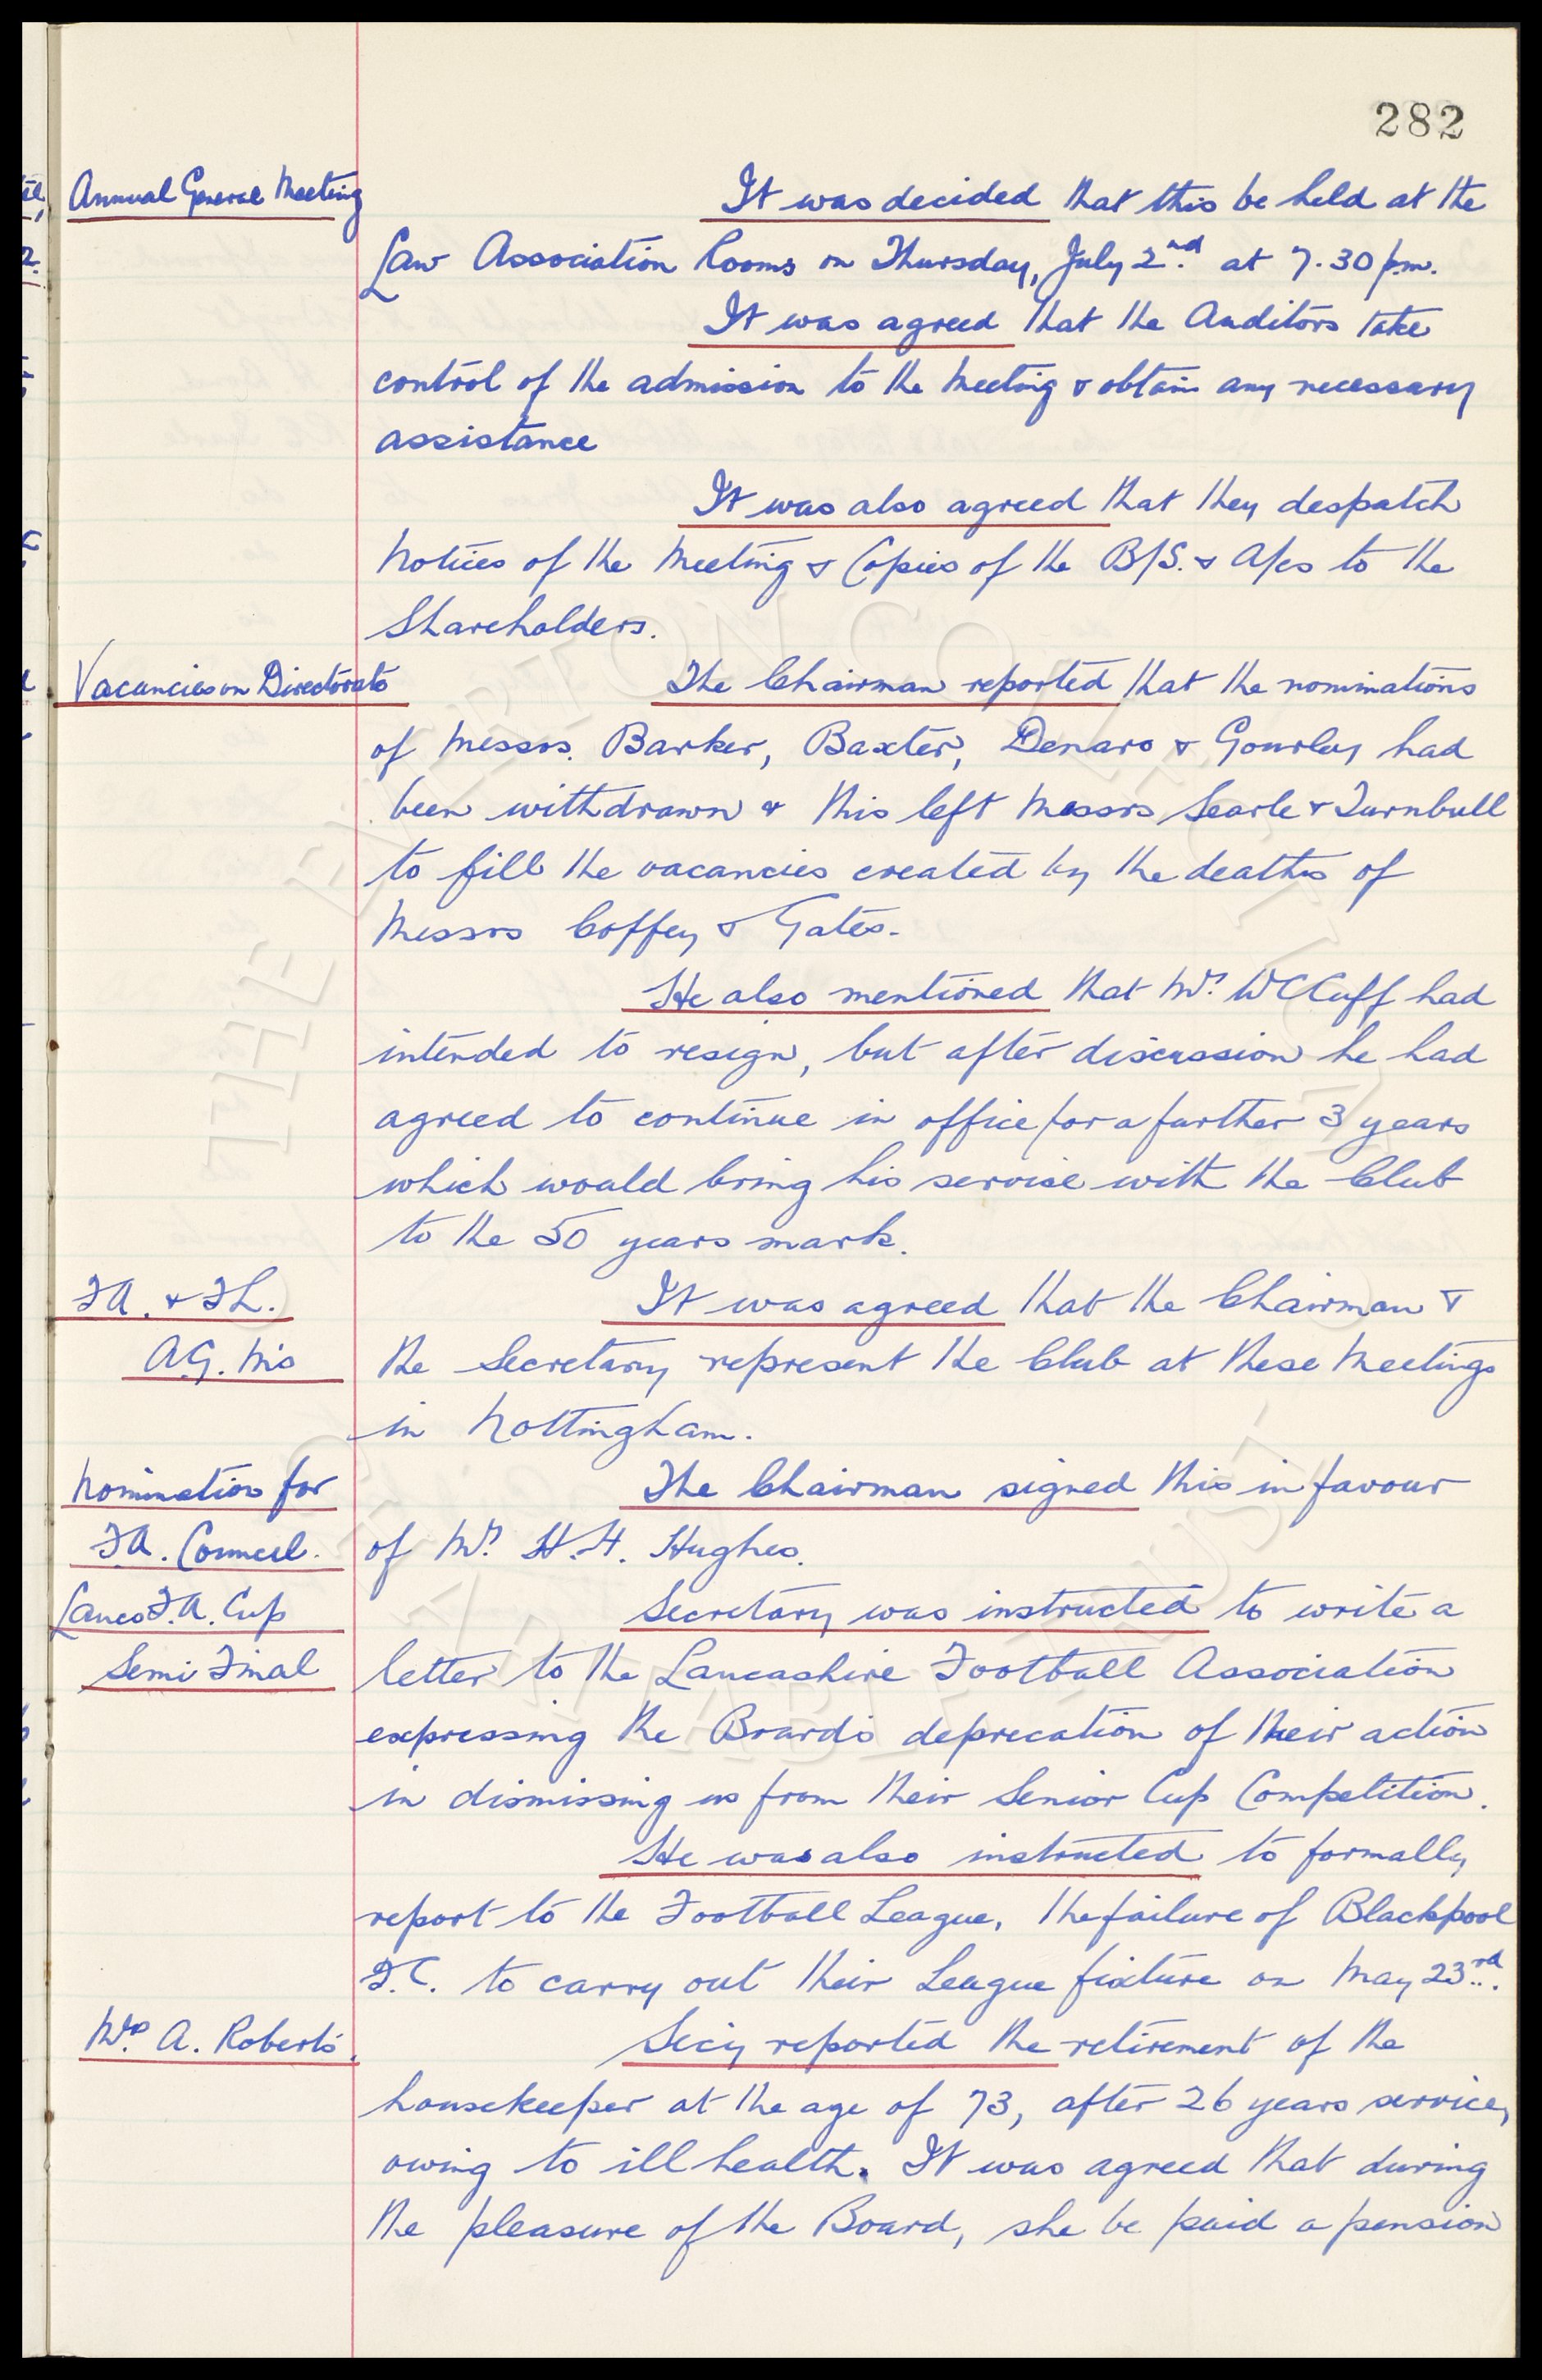 282
Annual General Meeting
It was decided that this be held at the
Law Association Rooms on Thursday, July 2nd. at 7.30 p.m.
It was agreed that the Auditors take
control of the admission to the Meeting & obtain any necessary
assistance
It was also agreed that they despatch
Notices of the Meeting & Copies of the B/S. & A/cs to the
Shareholders.
Vacancies on Directorate
The Chairman reported that the nominations
of Messrs. Barker, Baxter, Denaro & Gourley had
been withdrawn & this left Messrs Searle & Turnbull
to fill the vacancies created by the deaths of
Messrs Coffey & Gates.
He also mentioned that Mr. W C Cuff had
intended to resign, but after discussion he had
agreed to continue in office for a further 3 years
which would bring his service with the Club
to the 50 years mark.
F.A. & F.L.
A.G. M's
It was agreed that the Chairman &
the Secretary represent the Club at these Meetings
in Nottingham.
Nomination for
F.A. Council.
The Chairman signed this in favour
of Mr. H.H. Hughes.
Lancs F.A. Cup
Semi Final
Secretary was instructed to write a
letter to the Lancashire Football Association
expressing the Board's deprecation of their action
in dismissing us from their Senior Cup Competition.
He was also instructed to formally
report to the Football League, the failure of Blackpool
F.C. to carry out their League fixture on May 23rd.
Mrs A. Roberts.
Secy reported the retirement of the
housekeeper at the age of 73, after 26 years service,
owing to ill health. It was agreed that during
the pleasure of the Board, she be paid a pension
THE EVERTON COLLECTION
CHARITABLE TRUST